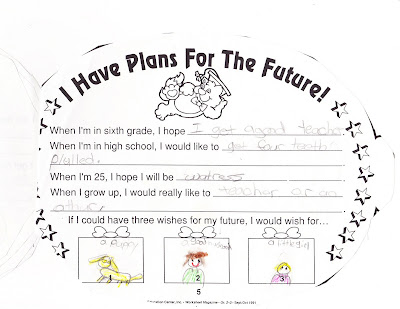 I Have Plans For The Future!
When I'm in sixth grade, I hope I get agood teache
When I'm in high school, I would like to get four teeth
plylled.
When I'm 25, I hope I will be waitress
When I grow up, I would really like to teacher or an
If I could have three wishes for my future, I would wish for...
a Puppy a good a little girl
1 2 3
5
Center, Inc. • Worksheet Magazine • Gr.